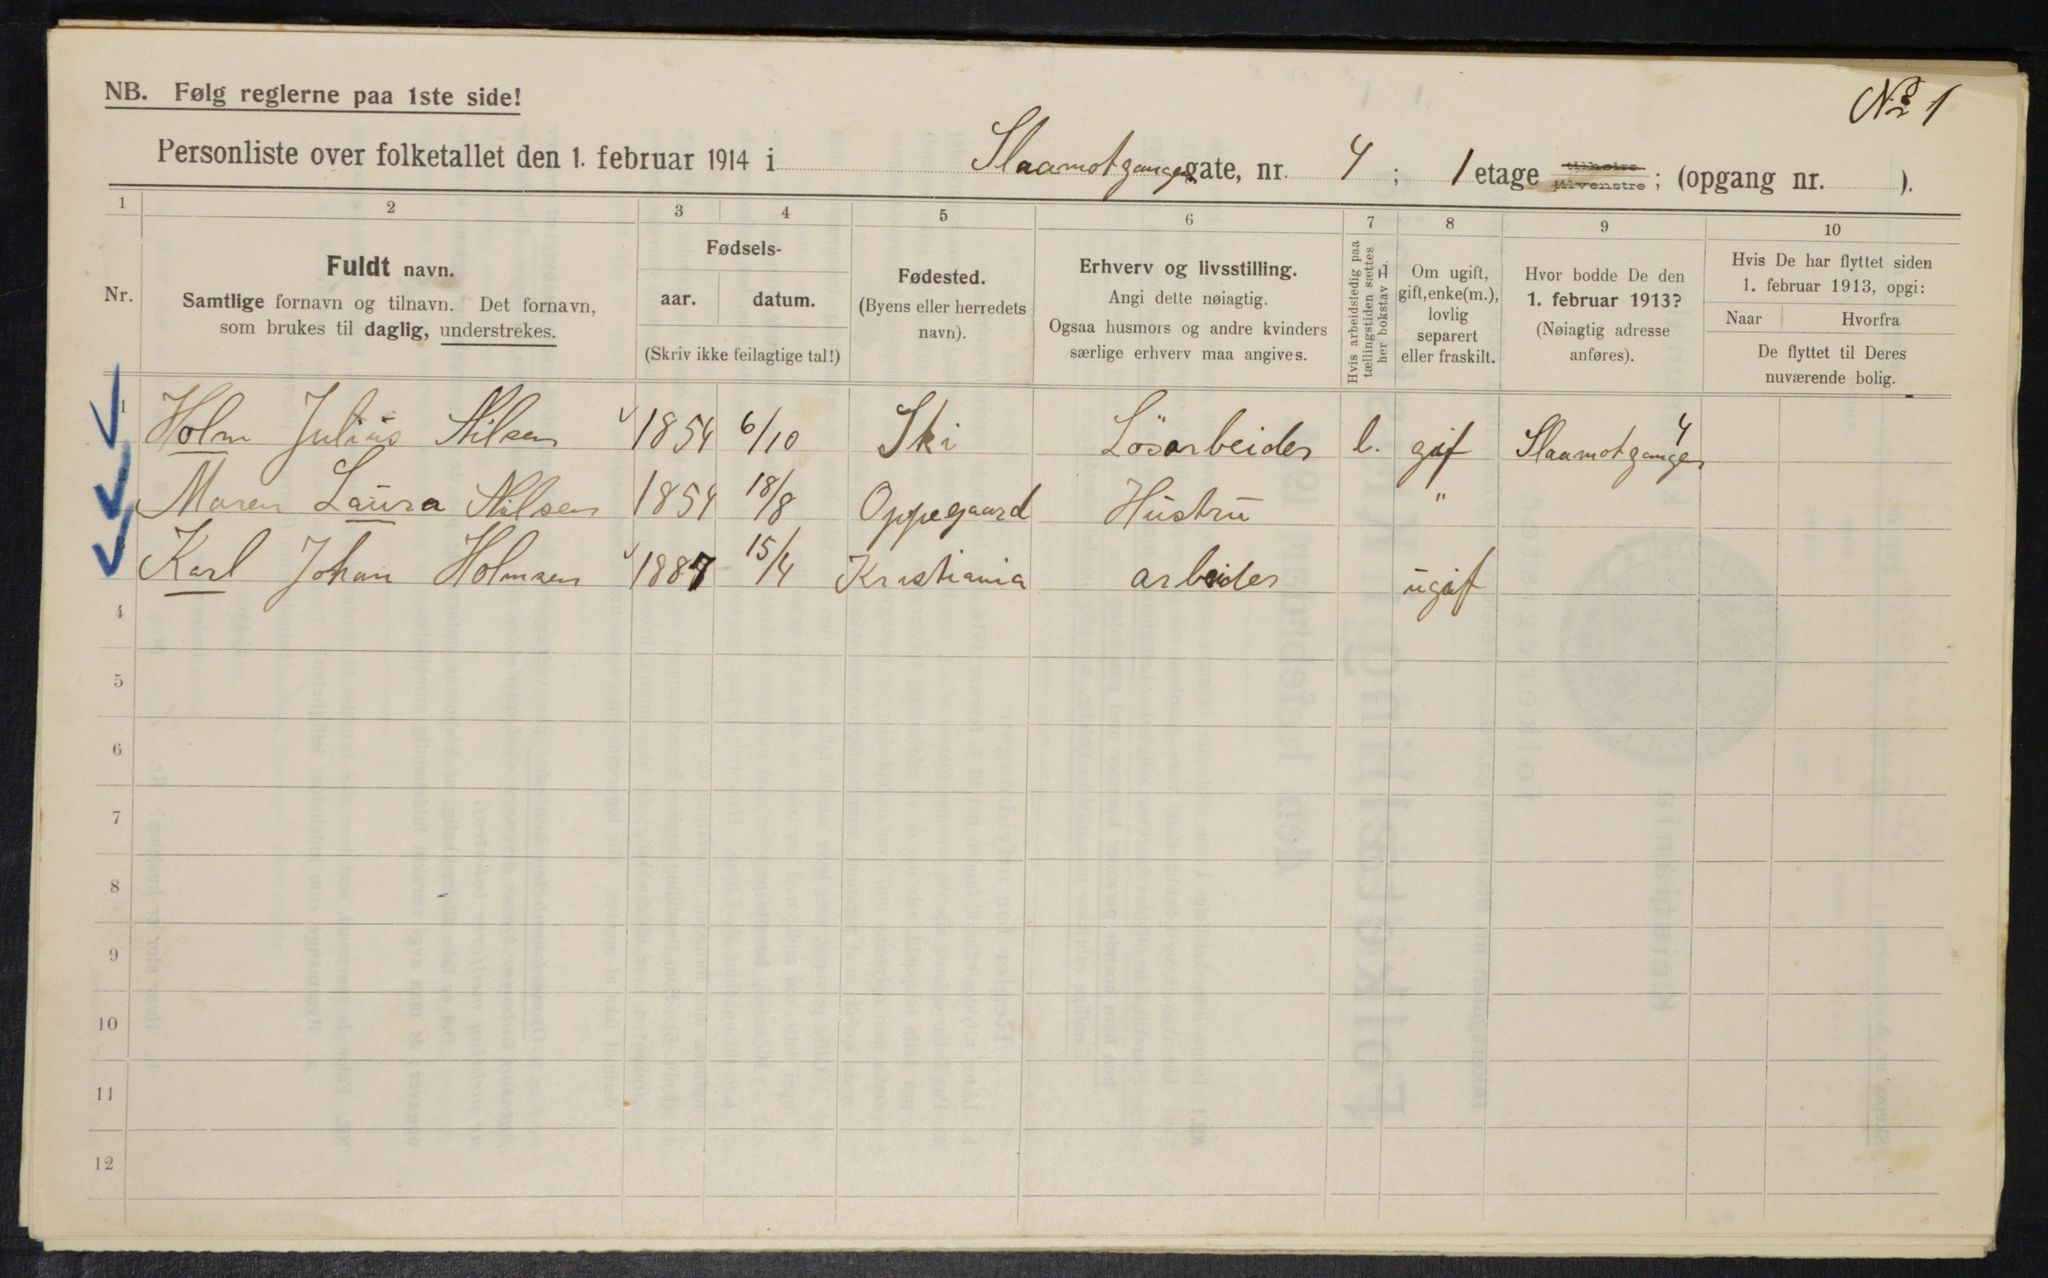 No 1
NB. Følg reglerne paa 1ste side!
Personliste over folketallet den 1. februar 1914 i Slaamotgangen gate, nr. 4 ; 1 etage tilhøire tilvenstre ; (opgang nr. ).
1 2 3 4 5 6 7 8 9 10
Nr.
Fuldt navn.
Samtlige fornavn og tilnavn. Det fornavn,
som brukes til daglig, understrekes.
Fødsels-
aar. datum.
(Skriv ikke feilagtige tal!)
Fødested.
(Byens eller herredets
navn).
Erhverv og livsstilling.
Angi dette nøiagtig.
Ogsaa husmors og andre kvinders
særlige erhverv maa angives.
Hvis arbeidsledig paa
tællingstiden sættes
her bokstav L.
Om ugift,
gift, enke(m.),
lovlig
separert
eller fraskilt.
Hvor bodde De den
1. februar 1913?
(Nøiagtig adresse
anføres).
Hvis De har flyttet siden
1. februar 1913, opgi:
Naar Hvorfra
De flyttet til Deres
nuværende bolig.
1 Holm Julius Nilsen 1854 6/10 Ski Løsarbeider l. gif Slaamotgangen 4
Maren Laura Nilsen 1854 18/8 Oppegaard Hustru "
Karl Johan Holmsen 1887 15/4 Kristiania arbeider ugif
4
5
6
7
8
9
10
11
12